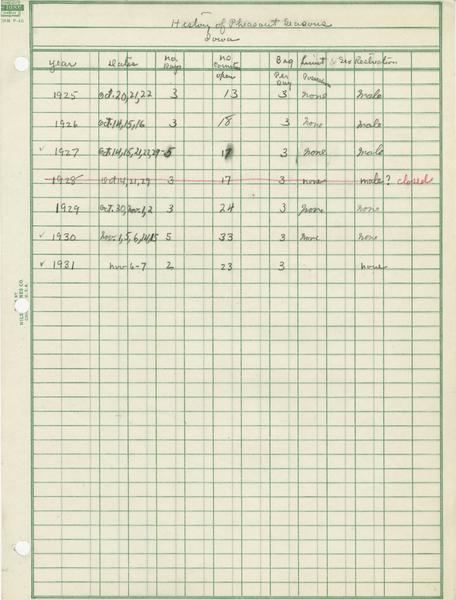 History of Pheasant Seasons
Iowa
Year Dates No. Days No. Counties Open Bag Per Day Limit Possession Sex Restriction
1925 Oct. 20, 21, 22 3 13 3 none male
1926 Oct. 14, 15, 16 3 18 3 none male
✓ 1927 Oct. 14, 15, 21, 22, 29 - 5 17 3 none male
1928 Oct 14, 21, 29 3 17 3 none male? closed
1929 Oct. 30, Nov. 1, 2 3 24 3 none none
✓ 1930 Nov. 1, 5, 6, 14, 15 5 33 3 none none
✓ 1931 Nov 6-7 2 23 3 none